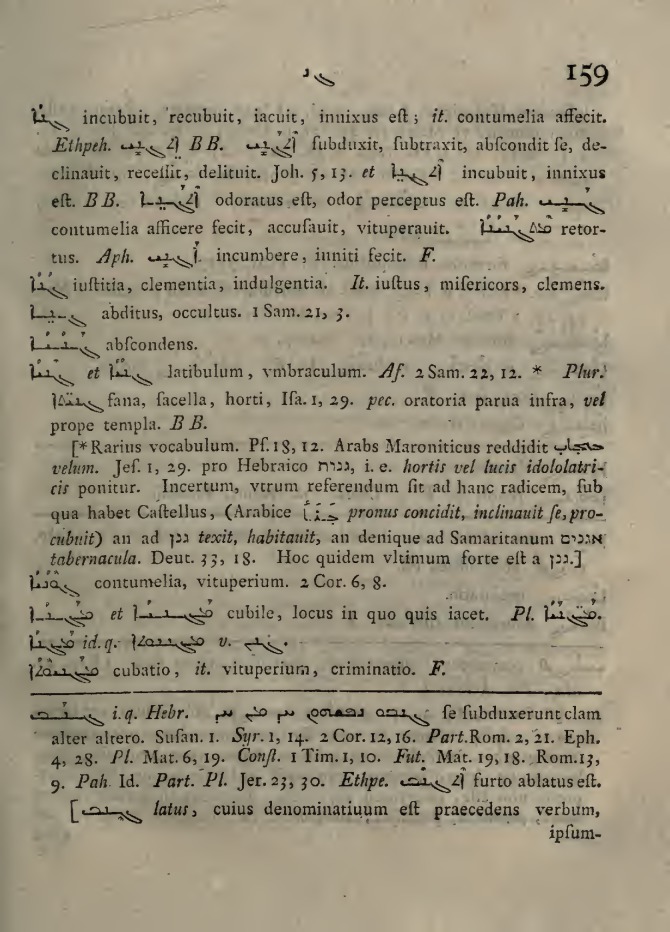 ܓܢ 159
ܓܢܐ incubuit, recubuit, iacuit, innixus eſt; it. contumelia affecit.
Ethpeh. ܐܬܓܢܝ B B. ܐܬܓܢܝ ſubduxit, ſubtraxit, abſcondit ſe, de-
clinauit, receſſit, delituit. Joh. 5, 13. et ܐܬܓܢܐ incubuit, innixus
eſt. B B. odoratus eſt, odor perceptus eſt. Pah. ܓܢܝ
contumelia afficere fecit, accuſauit, vituperauit. retor-
tus. Aph. ܐܓܢܝ incumbere, inniti fecit. F.
iuſtitia, clementia, indulgentia. It. iuſtus, miſericors, clemens.
ܓܢܝܐ abditus, occultus. 1 Sam. 21, 3.
abſcondens.
et latibulum, vmbraculum. Af. 2 Sam. 22, 12. * Plur.
fana, ſacella, horti, Iſa. 1, 29. pec. oratoria parua infra, vel
prope templa. B B.
[* Rarius vocabulum. Pſ. 18, 12. Arabs Maroniticus reddidit حجاب
velum. Jeſ. 1, 29. pro Hebraico גנות, i. e. hortis vel lucis idololatri-
cis ponitur. Incertum, vtrum referendum ſit ad hanc radicem, ſub
qua habet Caſtellus, (Arabice pronus concidit, inclinauit ſe, pro-
cubuit) an ad גנן texit, habitauit, an denique ad Samaritanum אגנים
tabernacula. Deut. 33, 18. Hoc quidem vltimum forte eſt a גנן.]
ܓܘܢܝܐ contumelia, vituperium. 2 Cor. 6, 8.
et cubile, locus in quo quis iacet. Pl.
id. q. v.
cubatio, it. vituperium, criminatio. F.
ܓܢܒ i. q. Hebr. ܓܢܒܘ ܢܦܫܗܘܢ ܚܕ ܡܢ ܚܕ ſe ſubduxerunt clam
alter altero. Suſan. 1. Syr. 1, 14. 2 Cor. 12, 16. Part. Rom. 2, 21. Eph.
4, 28. Pl. Mat. 6, 19. Conſt. 1 Tim. 1, 10. Fut. Mat. 19, 18. Rom. 13,
9. Pah Id. Part. Pl. Jer. 23, 30. Ethpe. ܐܬܓܢܒ furto ablatus eſt.
[ܓܢܒ latus, cuius denominatiuum eſt praecedens verbum,
ipſum-